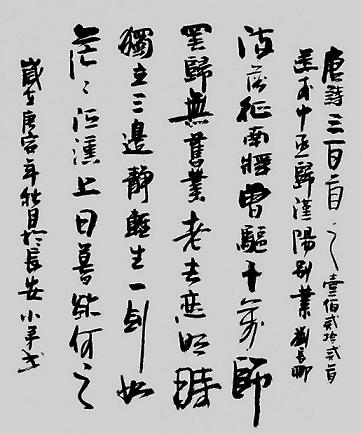 唐詩三百首之壹佰貳拾貳首
送李中丞歸漢陽別業 劉長卿
流落征南將曾驅十萬師
罷歸無舊業老去恋明時
獨立三邊靜輕生一剑知
茫々江漢上日暮欲何之
歲在庚寅年秋月於長安 小平书